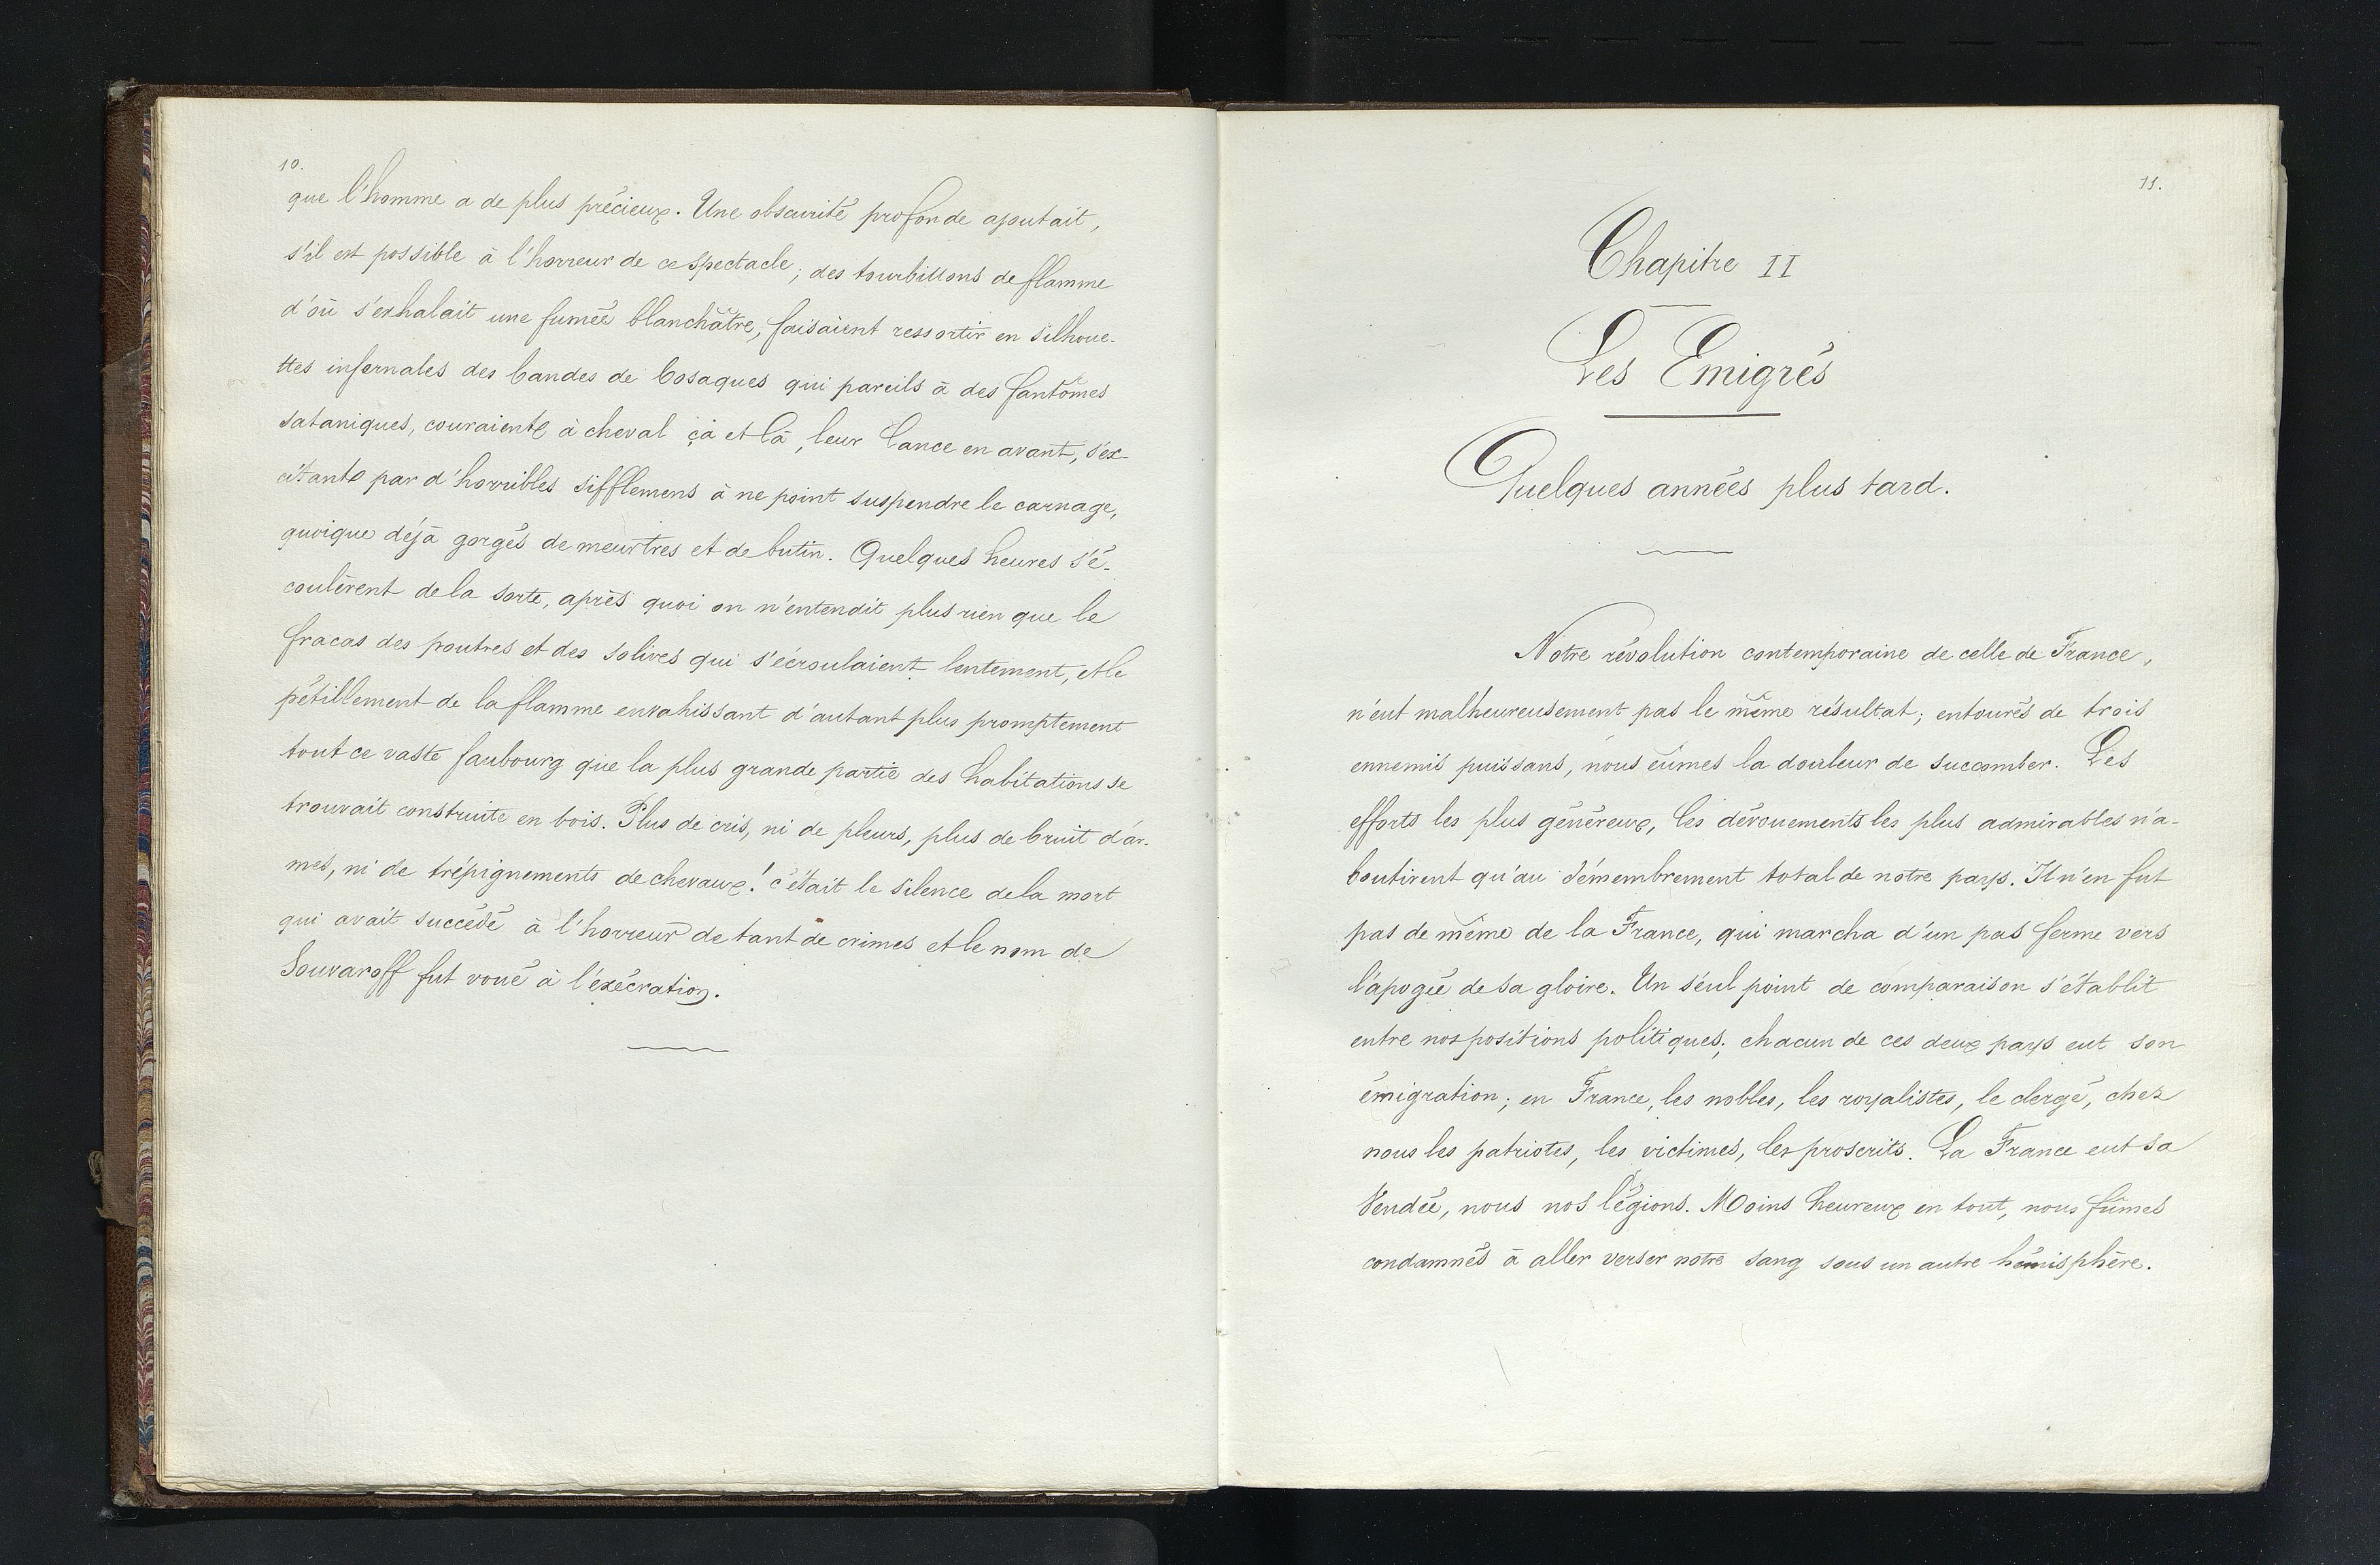 10.
que l'homme a de plus précieux. Une obscurité profonde ajoutait,
s'il est possible à l'horreur de ce spectacle; des tourbillons de flamme
d'où s'exhalait une fumée blanchâtre, faisaient ressortir en silhoue-
ttes infernales des bandes de Cosaques qui pareils à des fantômes
sataniques, couraient à cheval çà et là, leur lance en avant, s'ex-
citant par d'horribles sifflemens à ne point suspendre le carnage,
quoique déjà gorgés de meurtres et de butin. Quelques heures s'é-
coulèrent de la sorte, après quoi on n'entendit plus rien que le
fracas des poutres et des solives qui s'écroulaient lentement, et le
pétillement de la flamme envahissant d'autant plus promptement
tout ce vaste faubourg que la plus grande partie des habitations se
trouvait construite en bois. Plus de cris, ni de pleurs, plus de bruit d'ar-
mes, ni de trépignements de chevaux! c'était le silence de la mort
qui avait succédé à l'horreur de tant de crimes et le nom de
Souvaroff fut voué à l'exécration.
11.
Chapitre II
Les Emigrés
Quelques années plus tard.
Notre révolution contemporaine de celle de France,
n'eut malheureusement pas le même résultat; entourés de trois
ennemis puissans, nous eûmes la douleur de succomber. Les
efforts les plus généreux, les dévouements les plus admirables n'a-
boutirent qu'au démembrement total de notre pays. Il n'en fut
pas de même de la France, qui marcha d'un pas ferme vers
l'apogée de sa gloire. Un seul point de comparaison s'établit
entre nos positions politiques; chacun de ces deux pays eut son
émigration; en France, les nobles, les royalistes, le clergé, chez
nous les patriotes, les victimes, les proscrits. La France eut sa
Vendée, nous nos légions. Moins heureux en tout, nous fûmes
condamnés à aller verser notre sang sous un autre hémisphère.